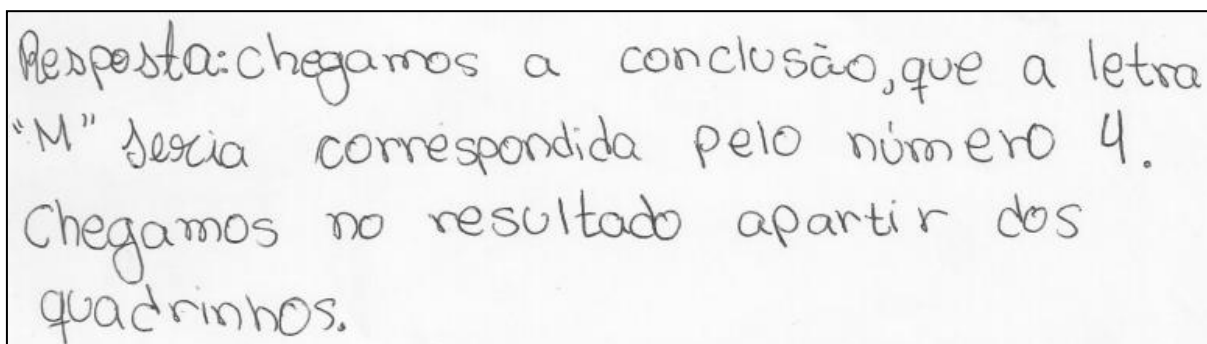 Resposta: chegamos a conclusão, que a letra
"M" seria correspondida pelo número 4.
Chegamos no resultado apartir dos
quadrinhos.